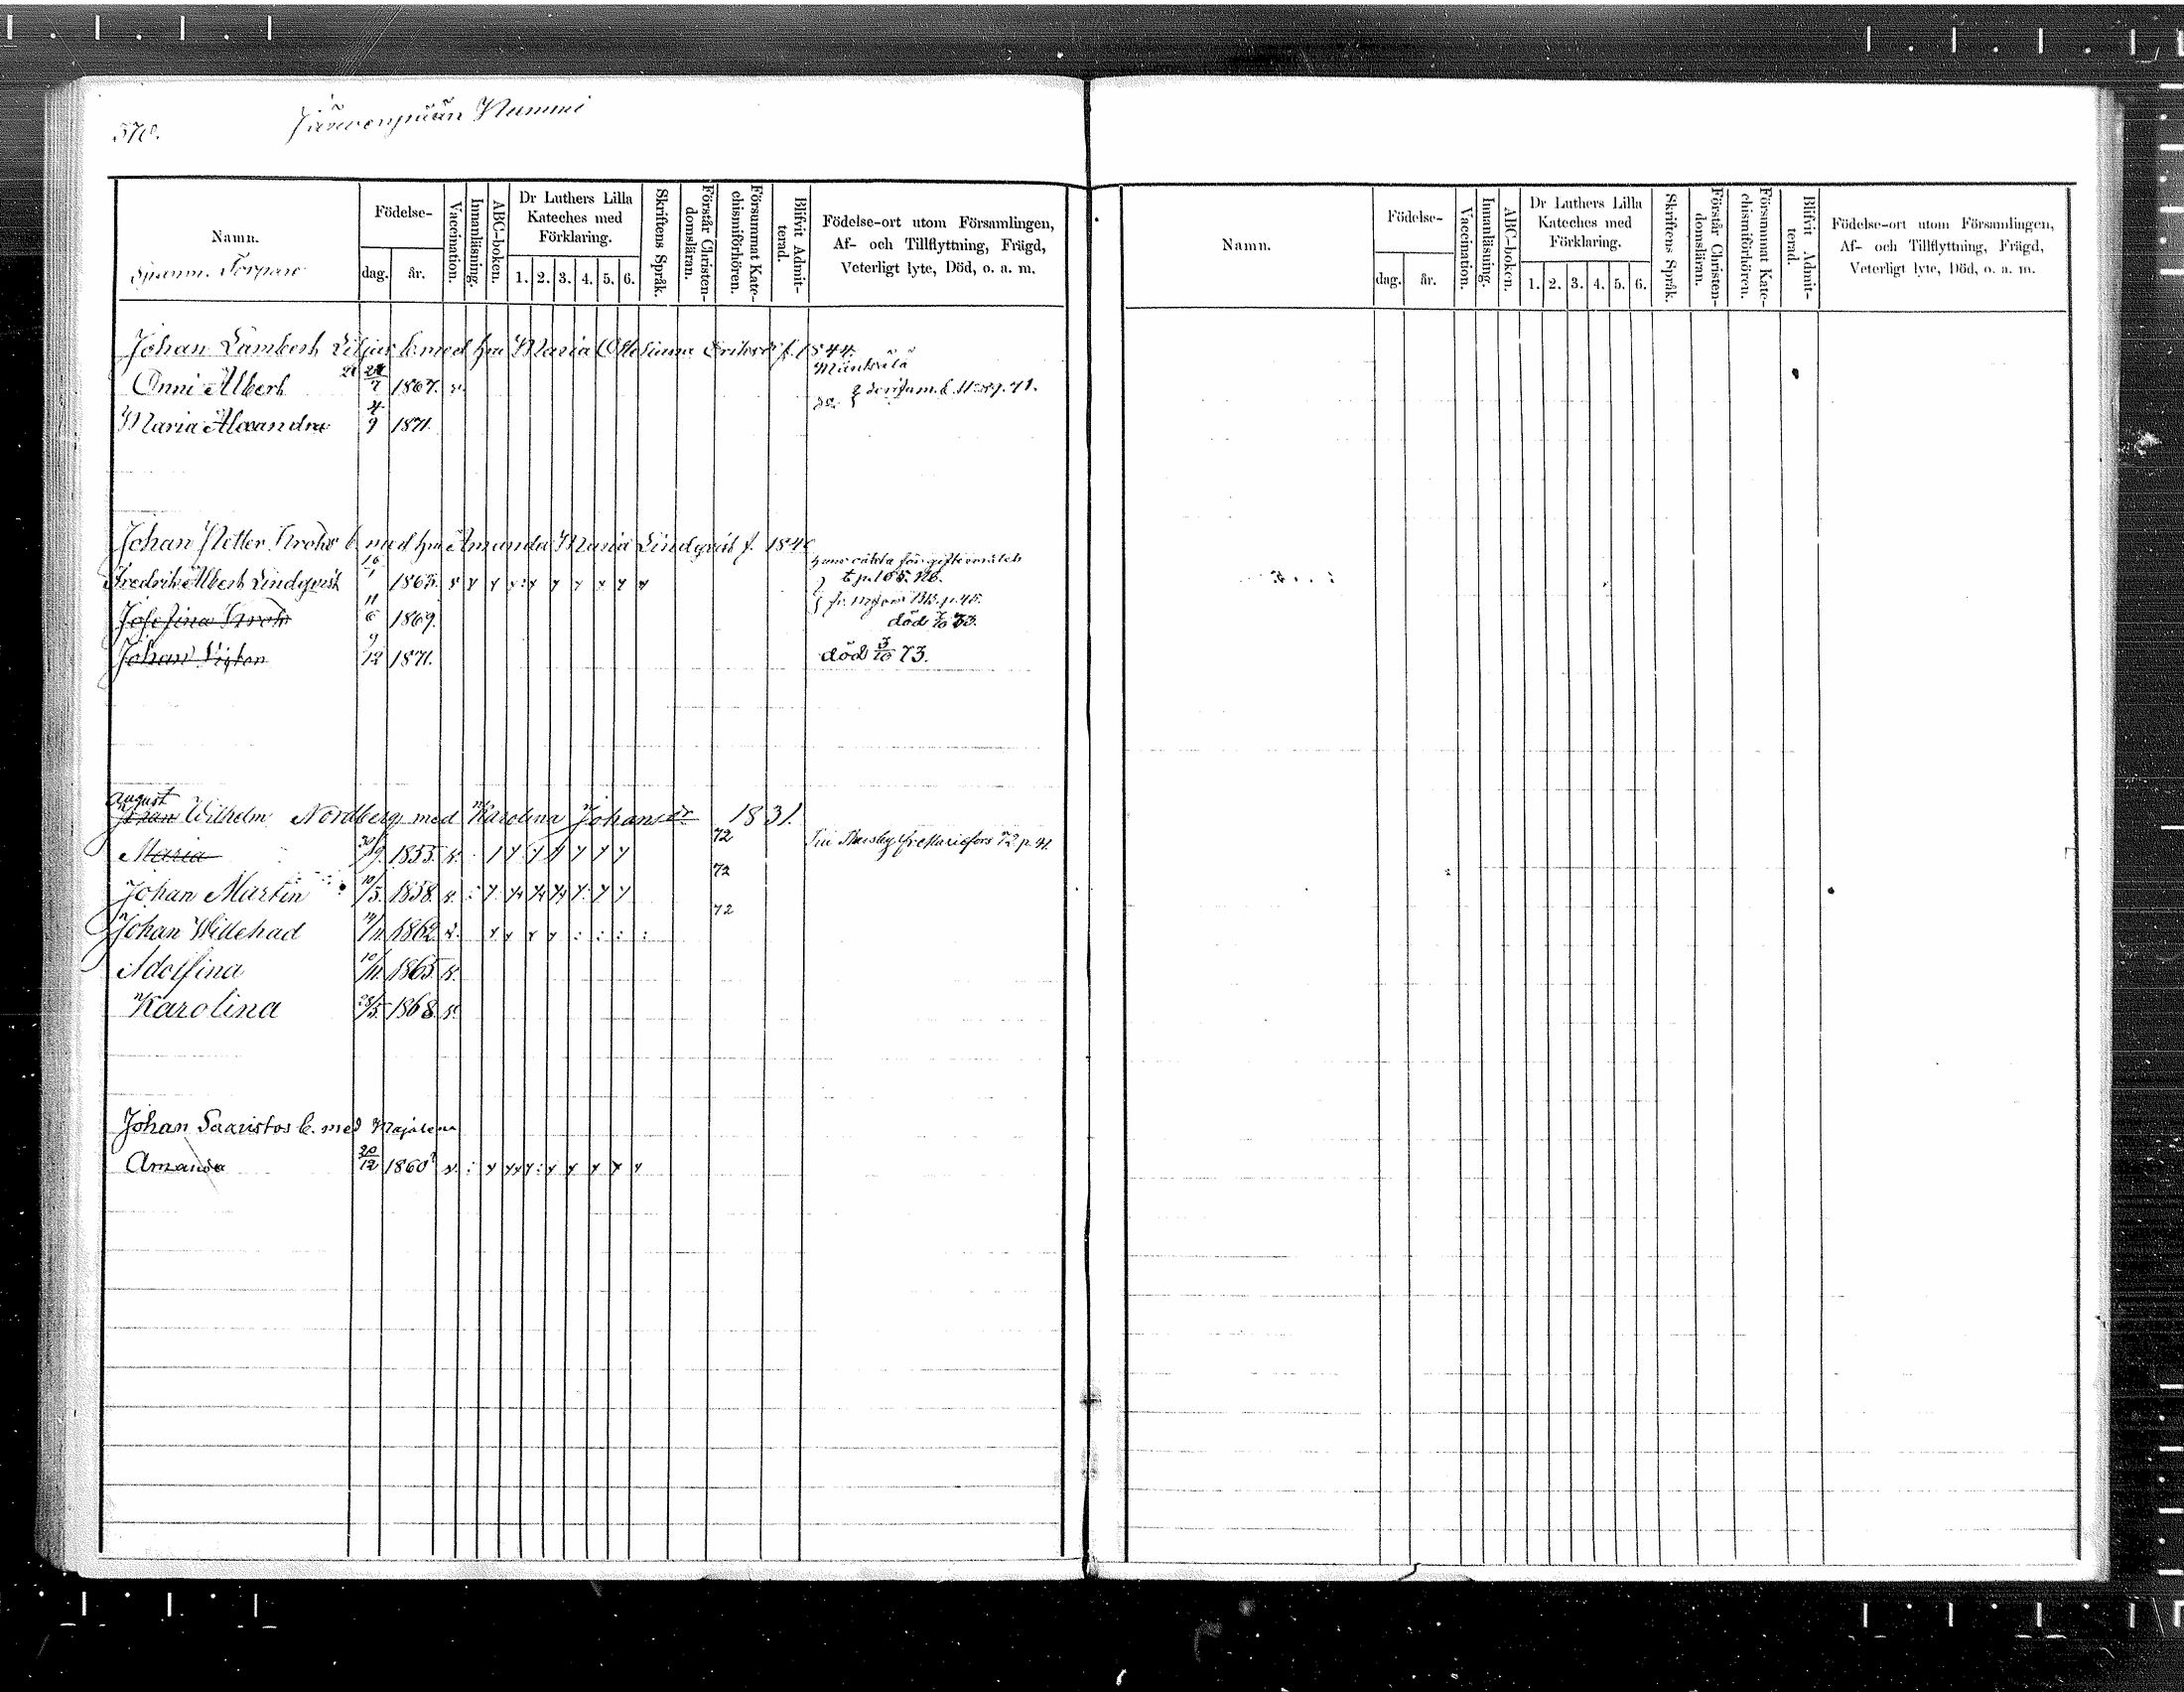 570.
Järvenpään Nummi
Namn.
Födelse-
dag.
år.
Vaccination.
Innanläsning.
ABC-boken.
Dr Luthers Lilla
Kateches med
Förklaring.
1. 2. 3. 4. 5. 6.
Skriftens Språk.
Förstår Christen-
domsläran.
Försummat Kate-
chismiförhören.
Blifvit Admit-
terad.
Födelse-ort utom Församlingen,
Af- och Tillflyttning, Frägd,
Veterligt lyte, Död, o. a. m.
Torpare
Johan Lambert Liljas b. med hu Maria Eriksdr f. 1844.
Mäntsälä
Onni Albert 7 1867. v.
Maria Alexandra 4/9 1871.
Johan Petter Krohs b. med hu Amanda Maria Lindqvist f. 1840
Fredrik Albert Lindqvist 16/1 1865. v
Josefina Kroh 11/6 1869. död
Johan Viktor 9/12 1871. död 3/10 73.
August
Johan Wilhelm Nordberg med Karolina Johansdr 1831.
Maria 30/9 1855. v. 72
Johan Martin 10/5 1858. v. 72
Johan Willehad 14/11 1862 v. 72
Adolfina 10/11 1865 v.
Karolina 28/5 1868. v.
Johan Saaristos b. med Majalena
Amanda 20/12 1860 v.
Namn.
Födelse-
dag.
år.
Vaccination.
Innanläsning.
ABC-boken.
Dr Luthers Lilla
Kateches med
Förklaring.
1. 2. 3. 4. 5. 6.
Skriftens Språk.
Förstår Christen-
domsläran.
Försummat Kate-
chismiförhören.
Blifvit Admit-
terad.
Födelse-ort utom Församlingen,
Af- och Tillflyttning, Frägd,
Veterligt lyte, Död, o. a. m.